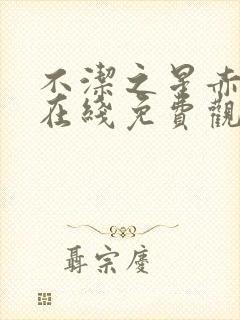 不潔之星赤
在綫免費觀
聶宗慶